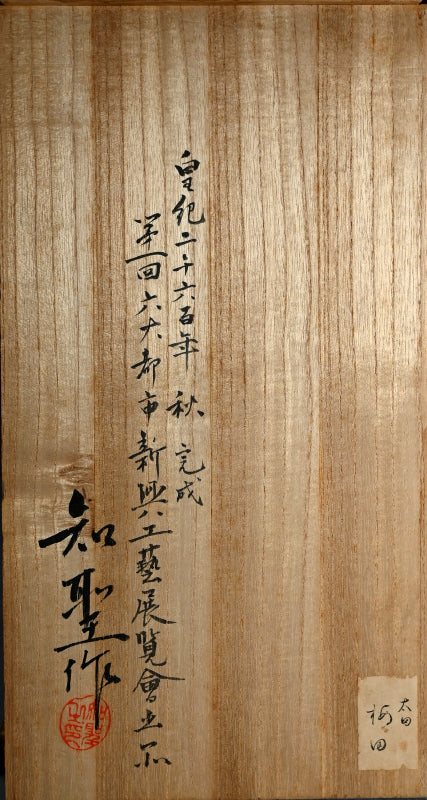 皇紀二千六百年 秋 完成
第一回六大都市新興工藝展覧會出品
知聖作
太田
梅田